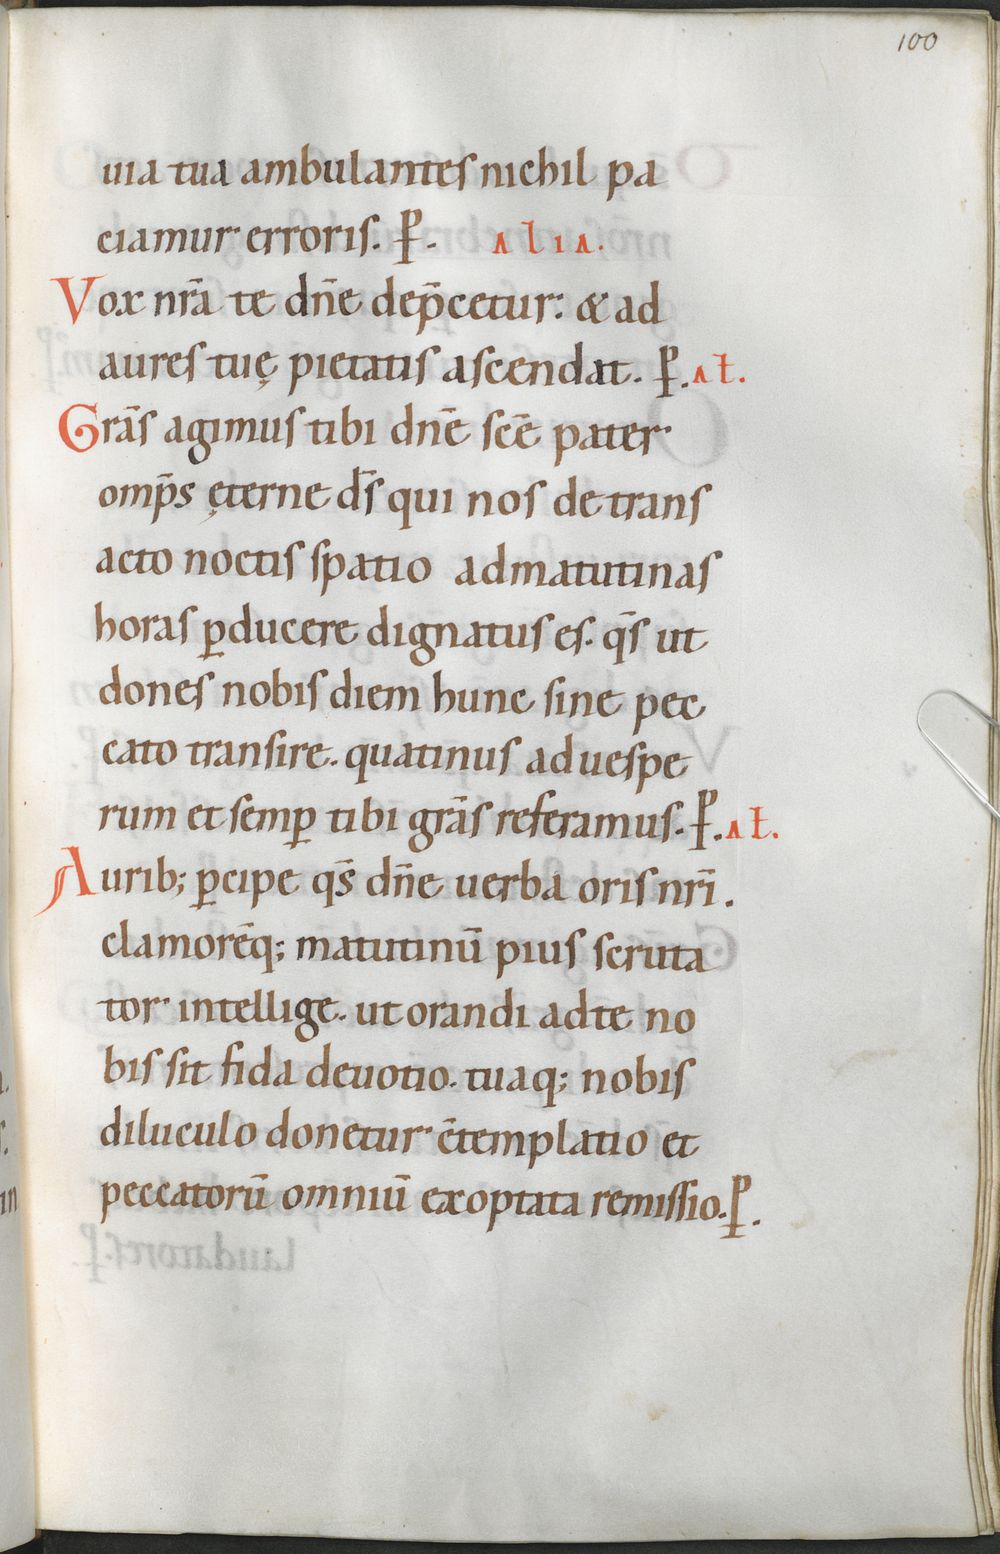 100
uia tua ambulantes nichil pa
ciamur erroris. P̱. alia.
Vox nr̄a te dn̄e dep̄cetur: & ad
aures tuę pietatis ascendat. P̱. ał.
Grās agimus tibi dn̄e scē pater
omp̄s ęterne d̄s qui nos de trans
acto noctis spatio ad matutinas
horas ꝑducere dignatus es. q̄s ut
dones nobis diem hunc sine pec
cato transire. quatinus ad uespe
rum et semꝑ tibi grās referamus. P̱. ał.
Aurib; ꝑcipe q̄s dn̄e uerba oris nr̄i.
clamorēq; matutinū pius scruta
tor intellige. ut orandi ad te no
bis sit fida deuotio. tuaq; nobis
diluculo donetur c̄templatio et
peccatorū omniū exoptata remissio. P̱.